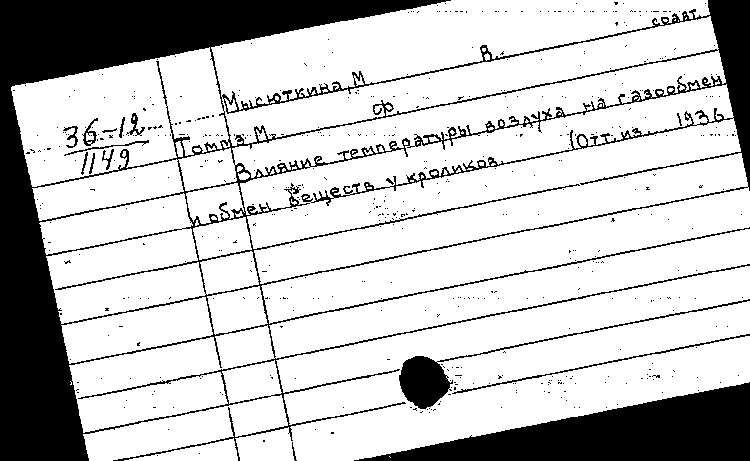 соавт.
Мысюткина, М В.
36-12
1149
Томмэ, М. ф.
Влияние температуры воздуха на газообмен
и обмен веществ у кроликов. (Отт. из. 1936